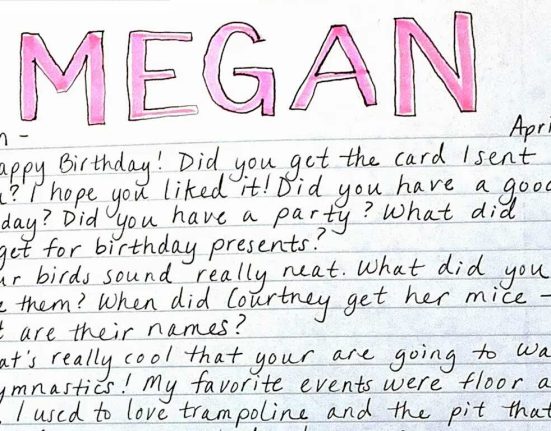 MEGAN
n - Apri
appy Birthday! Did you get the card I sent
? I hope you liked it! Did you have a good
day? Did you have a party? What did
get for birthday presents?
ur birds sound really neat. What did you
e them? When did Courtney get her mice -
t are their names?
at's really cool that your are going to wa
ymnastics! My favorite events were floor a
I used to love trampoline and the pit that